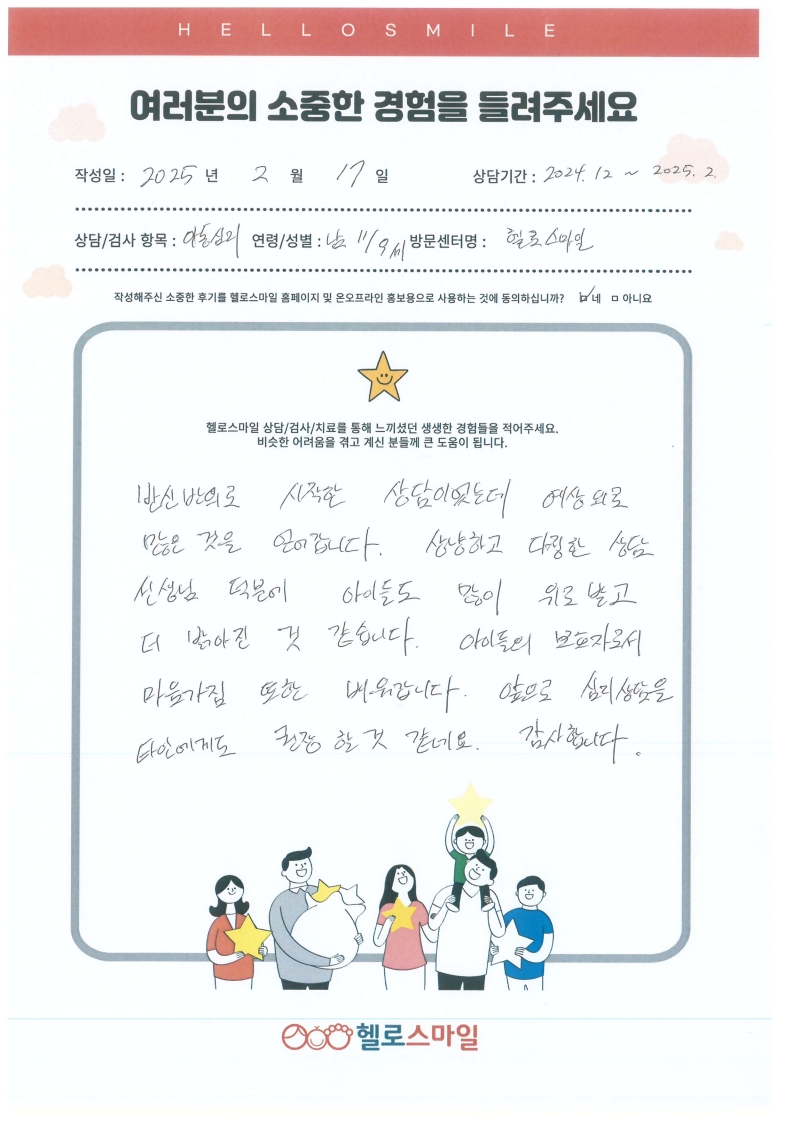 HELLOSMILE
여러분의 소중한 경험을 들려주세요
작성일 : 2025 년 2 월 17 일 상담기간 : 2024. 12 ~ 2025. 2.
상담/검사 항목 : 아동심리 연령/성별 : 남 11/9세 방문센터명 : 헬로스마일
작성해주신 소중한 후기를 헬로스마일 홈페이지 및 온오프라인 홍보용으로 사용하는 것에 동의하십니까? ☑ 네 □ 아니요
헬로스마일 상담/검사/치료를 통해 느끼셨던 생생한 경험들을 적어주세요.
비슷한 어려움을 겪고 계신 분들께 큰 도움이 됩니다.
반신반의로 시작한 상담이었는데 예상 외로
많은 것을 얻어갑니다. 상냥하고 다정한 상담
선생님 덕분에 아이들도 많이 위로 받고
더 밝아진 것 같습니다. 아이들의 보호자로서
마음가짐 또한 배워갑니다. 앞으로 심리상담을
타인에게도 권장 할 것 같네요. 감사합니다.
헬로스마일